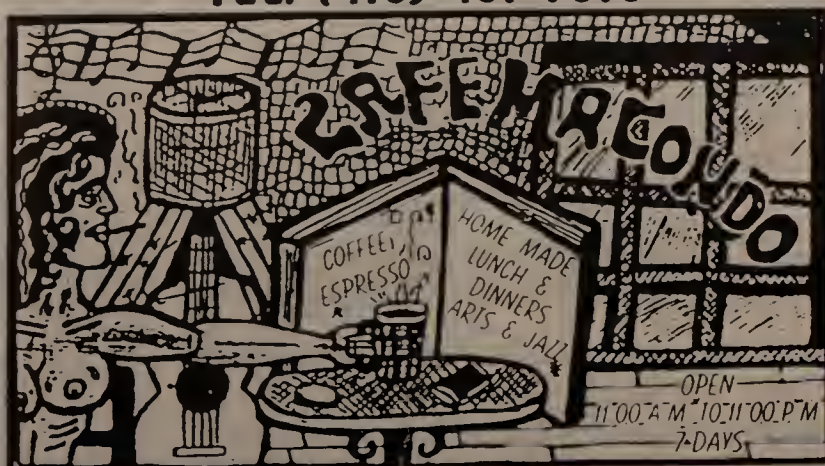 CAFE MACONDO
COFFEE,
ESPRESSO
HOME MADE
LUNCH &
DINNERS
ARTS & JAZZ
OPEN
11:00 A.M. TO 11:00 P.M
7-DAYS